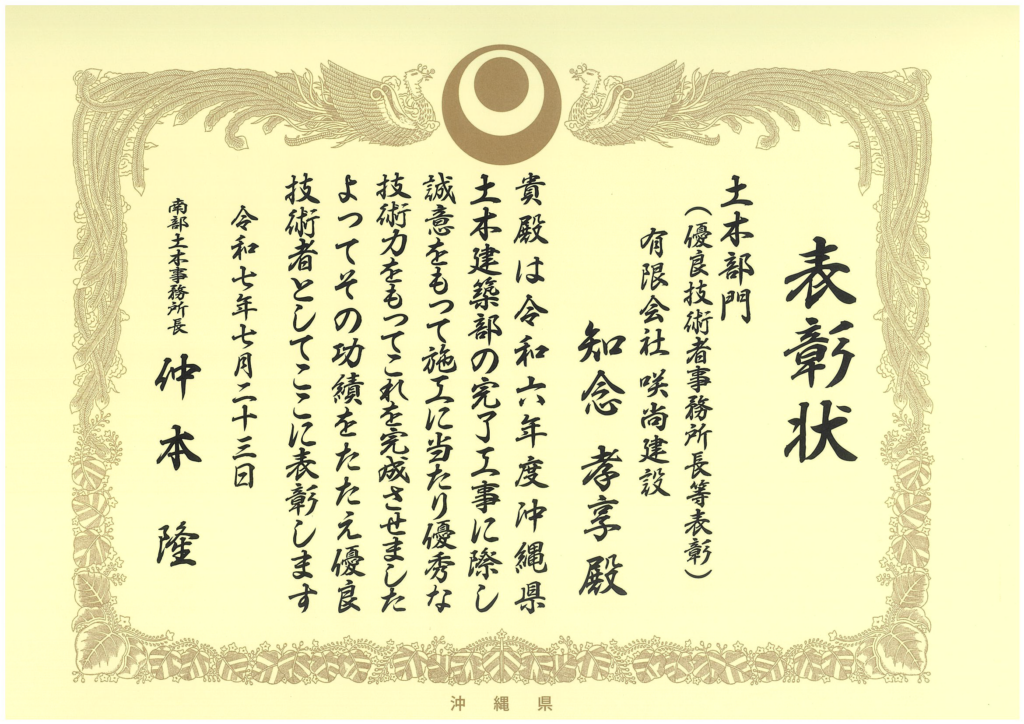 表彰状
土木部門
(優良技術者事務所長等表彰)
有限会社 咲尚建設
知念 孝享 殿
貴殿は令和六年度沖縄県
土木建築部の完了工事に際し
誠意をもって施工に当たり優秀な
技術力をもってこれを完成させました
よってその功績をたたえ優良
技術者としてここに表彰します
令和七年七月二十三日
南部土木事務所長 仲本 隆
沖縄県